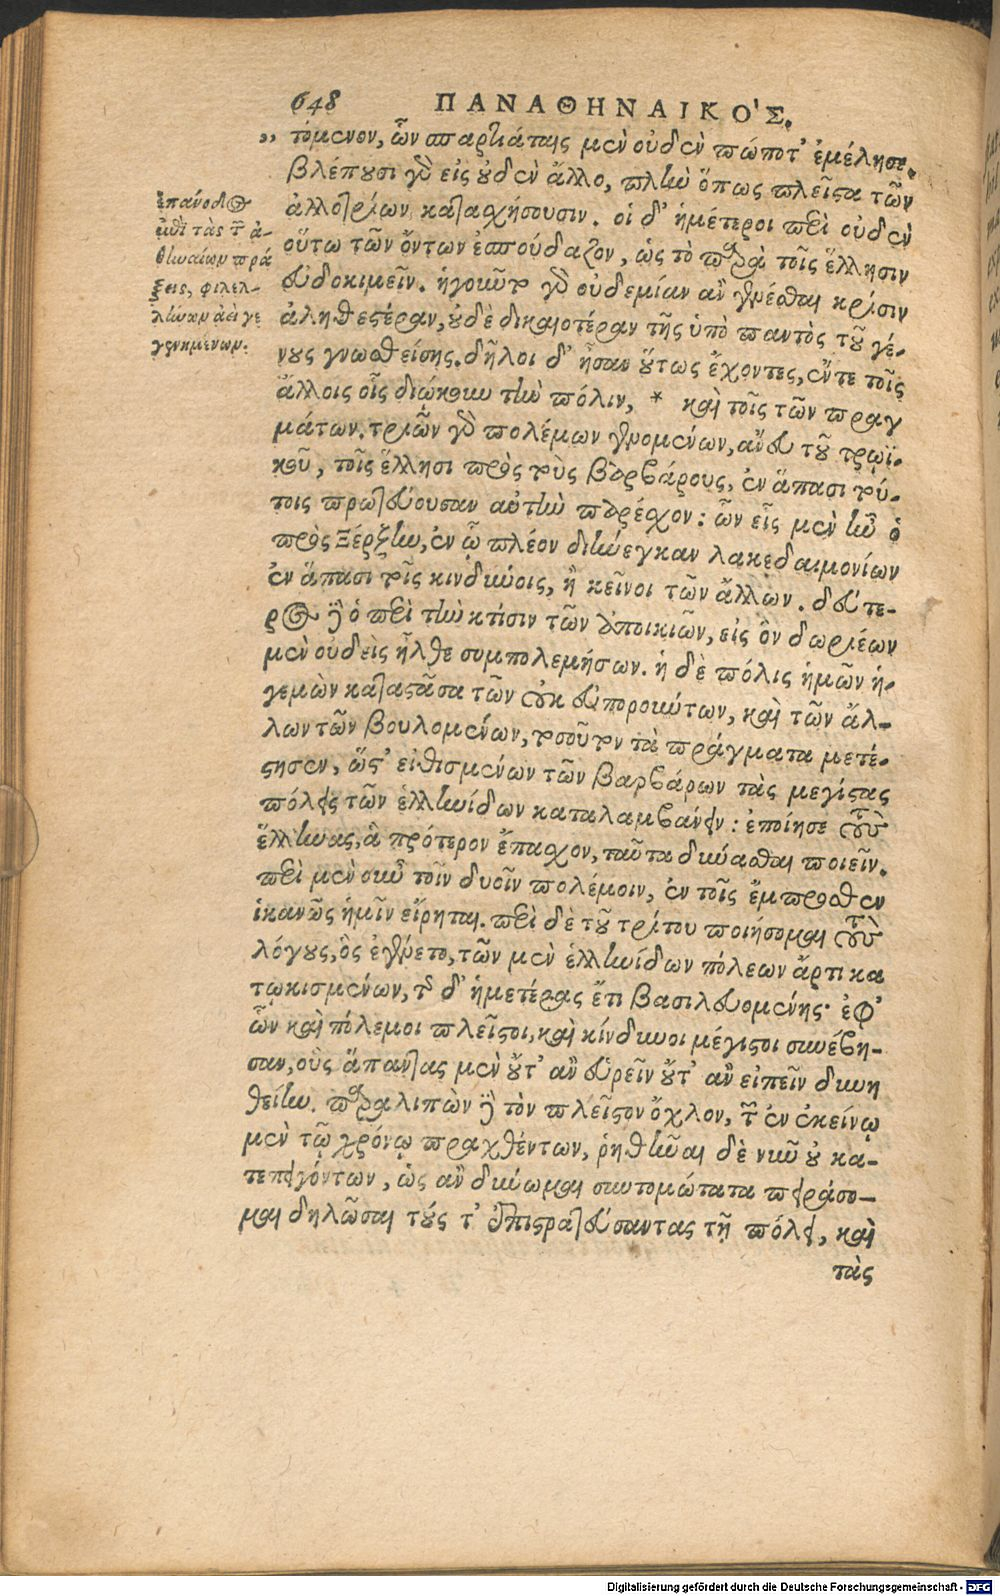 648 ΠΑΝΑΘΗΝΑΙΚΟ'Σ.
,, τόμενον, ὧν σπαρτιάταις μὲν οὐδὲν πώποτ' ἐμέλησε.
βλέπουσι γὸ εἰς οὐδὲν ἄλλο, πλὴν ὅπως πλεῖστα τῶν
ἀλλοτρίων κατασχήσουσιν. οἱ δ' ἡμέτεροι περὶ οὐδὲν
οὕτω τῶν ὄντων ἐσπούδαζον, ὡς τὸ παρὰ τοῖς ἕλλησιν
εὐδοκιμεῖν. ἡγοῦντο γὸ οὐδεμίαν ἂν γενέσθαι κρίσιν
ἀληθεστέραν, οὐδὲ δικαιοτέραν τῆς ὑπὸ παντὸς τοῦ γέ-
νους γνωσθείσης. δῆλοι δ' ἦσαν οὕτως ἔχοντες, ἔν τε τοῖς
ἄλλοις οἷς διώκουν τὴν πόλιν, * καὶ τοῖς τῶν πραγ
μάτων. τριῶν γὸ πολέμων γενομένων, ἄνευ τοῦ τρωϊ-
κοῦ, τοῖς ἕλλησι πρὸς τοὺς βαρβάρους, ἐν ἅπασι τού-
τοις πρωτεύουσαν αὐτὴν παρέσχον: ὧν εἷς μὲν ἦν ὁ
πρὸς Ξέρξην, ἐν ᾧ πλέον διήνεγκαν λακεδαιμονίων
ἐν ἅπασι τοῖς κινδύνοις, ἢ κεῖνοι τῶν ἄλλων. δεύτε-
ρος δὲ ὁ περὶ τὴν κτίσιν τῶν ἀποικιῶν, εἰς ὃν δωριέων
μὲν οὐδεὶς ἦλθε συμπολεμήσων. ἡ δὲ πόλις ἡμῶν ἡ-
γεμὼν καταστᾶσα τῶν οὐκ εὐπορούντων, καὶ τῶν ἄλ-
λων τῶν βουλομένων, τοσοῦτον τὰ πράγματα μετέ-
στησεν, ὥστ' εἰθισμένων τῶν βαρβάρων τὰς μεγίστας
πόλεις τῶν ἑλληνίδων καταλαμβάνειν: ἐποίησε τοὺς
ἕλληνας, ἃ πρότερον ἔπασχον, ταῦτα δύνασθαι ποιεῖν.
περὶ μὲν οὖν τοῖν δυοῖν πολέμοιν, ἐν τοῖς ἔμπροσθεν
ἱκανῶς ἡμῖν εἴρηται. περὶ δὲ τοῦ τρίτου ποιήσομαι τοὺς
λόγους, ὃς ἐγένετο, τῶν μὲν ἑλληνίδων πόλεων ἄρτι κα
τῳκισμένων, τῆς δ' ἡμετέρας ἔτι βασιλευομένης· ἐφ'
ὧν καὶ πόλεμοι πλεῖστοι, καὶ κίνδυνοι μέγιστοι συνέβη-
σαν, οὓς ἅπαντας μὲν οὔτ' ἂν εὑρεῖν οὔτ' ἂν εἰπεῖν δυνη
θείην. παραλιπὼν δὲ τὸν πλεῖστον ὄχλον, τῶν ἐν ἐκείνῳ
μὲν τῷ χρόνῳ πραχθέντων, ῥηθῆναι δὲ νῦν οὐ κα-
τεπειγόντων, ὡς ἂν δύνωμαι συντομώτατα πειράσο-
μαι δηλῶσαι τούς τ' ἐπιστρατεύσαντας τῇ πόλει, καὶ
τὰς
ἐπάνοδος
ἐπὶ τὰς τῶν ἀ-
θηναίων πρά
ξεις, φιλελ-
λήνων ἀεὶ γε
γενημένων.
Digitalisierung gefördert durch die Deutsche Forschungsgemeinschaft - DFG